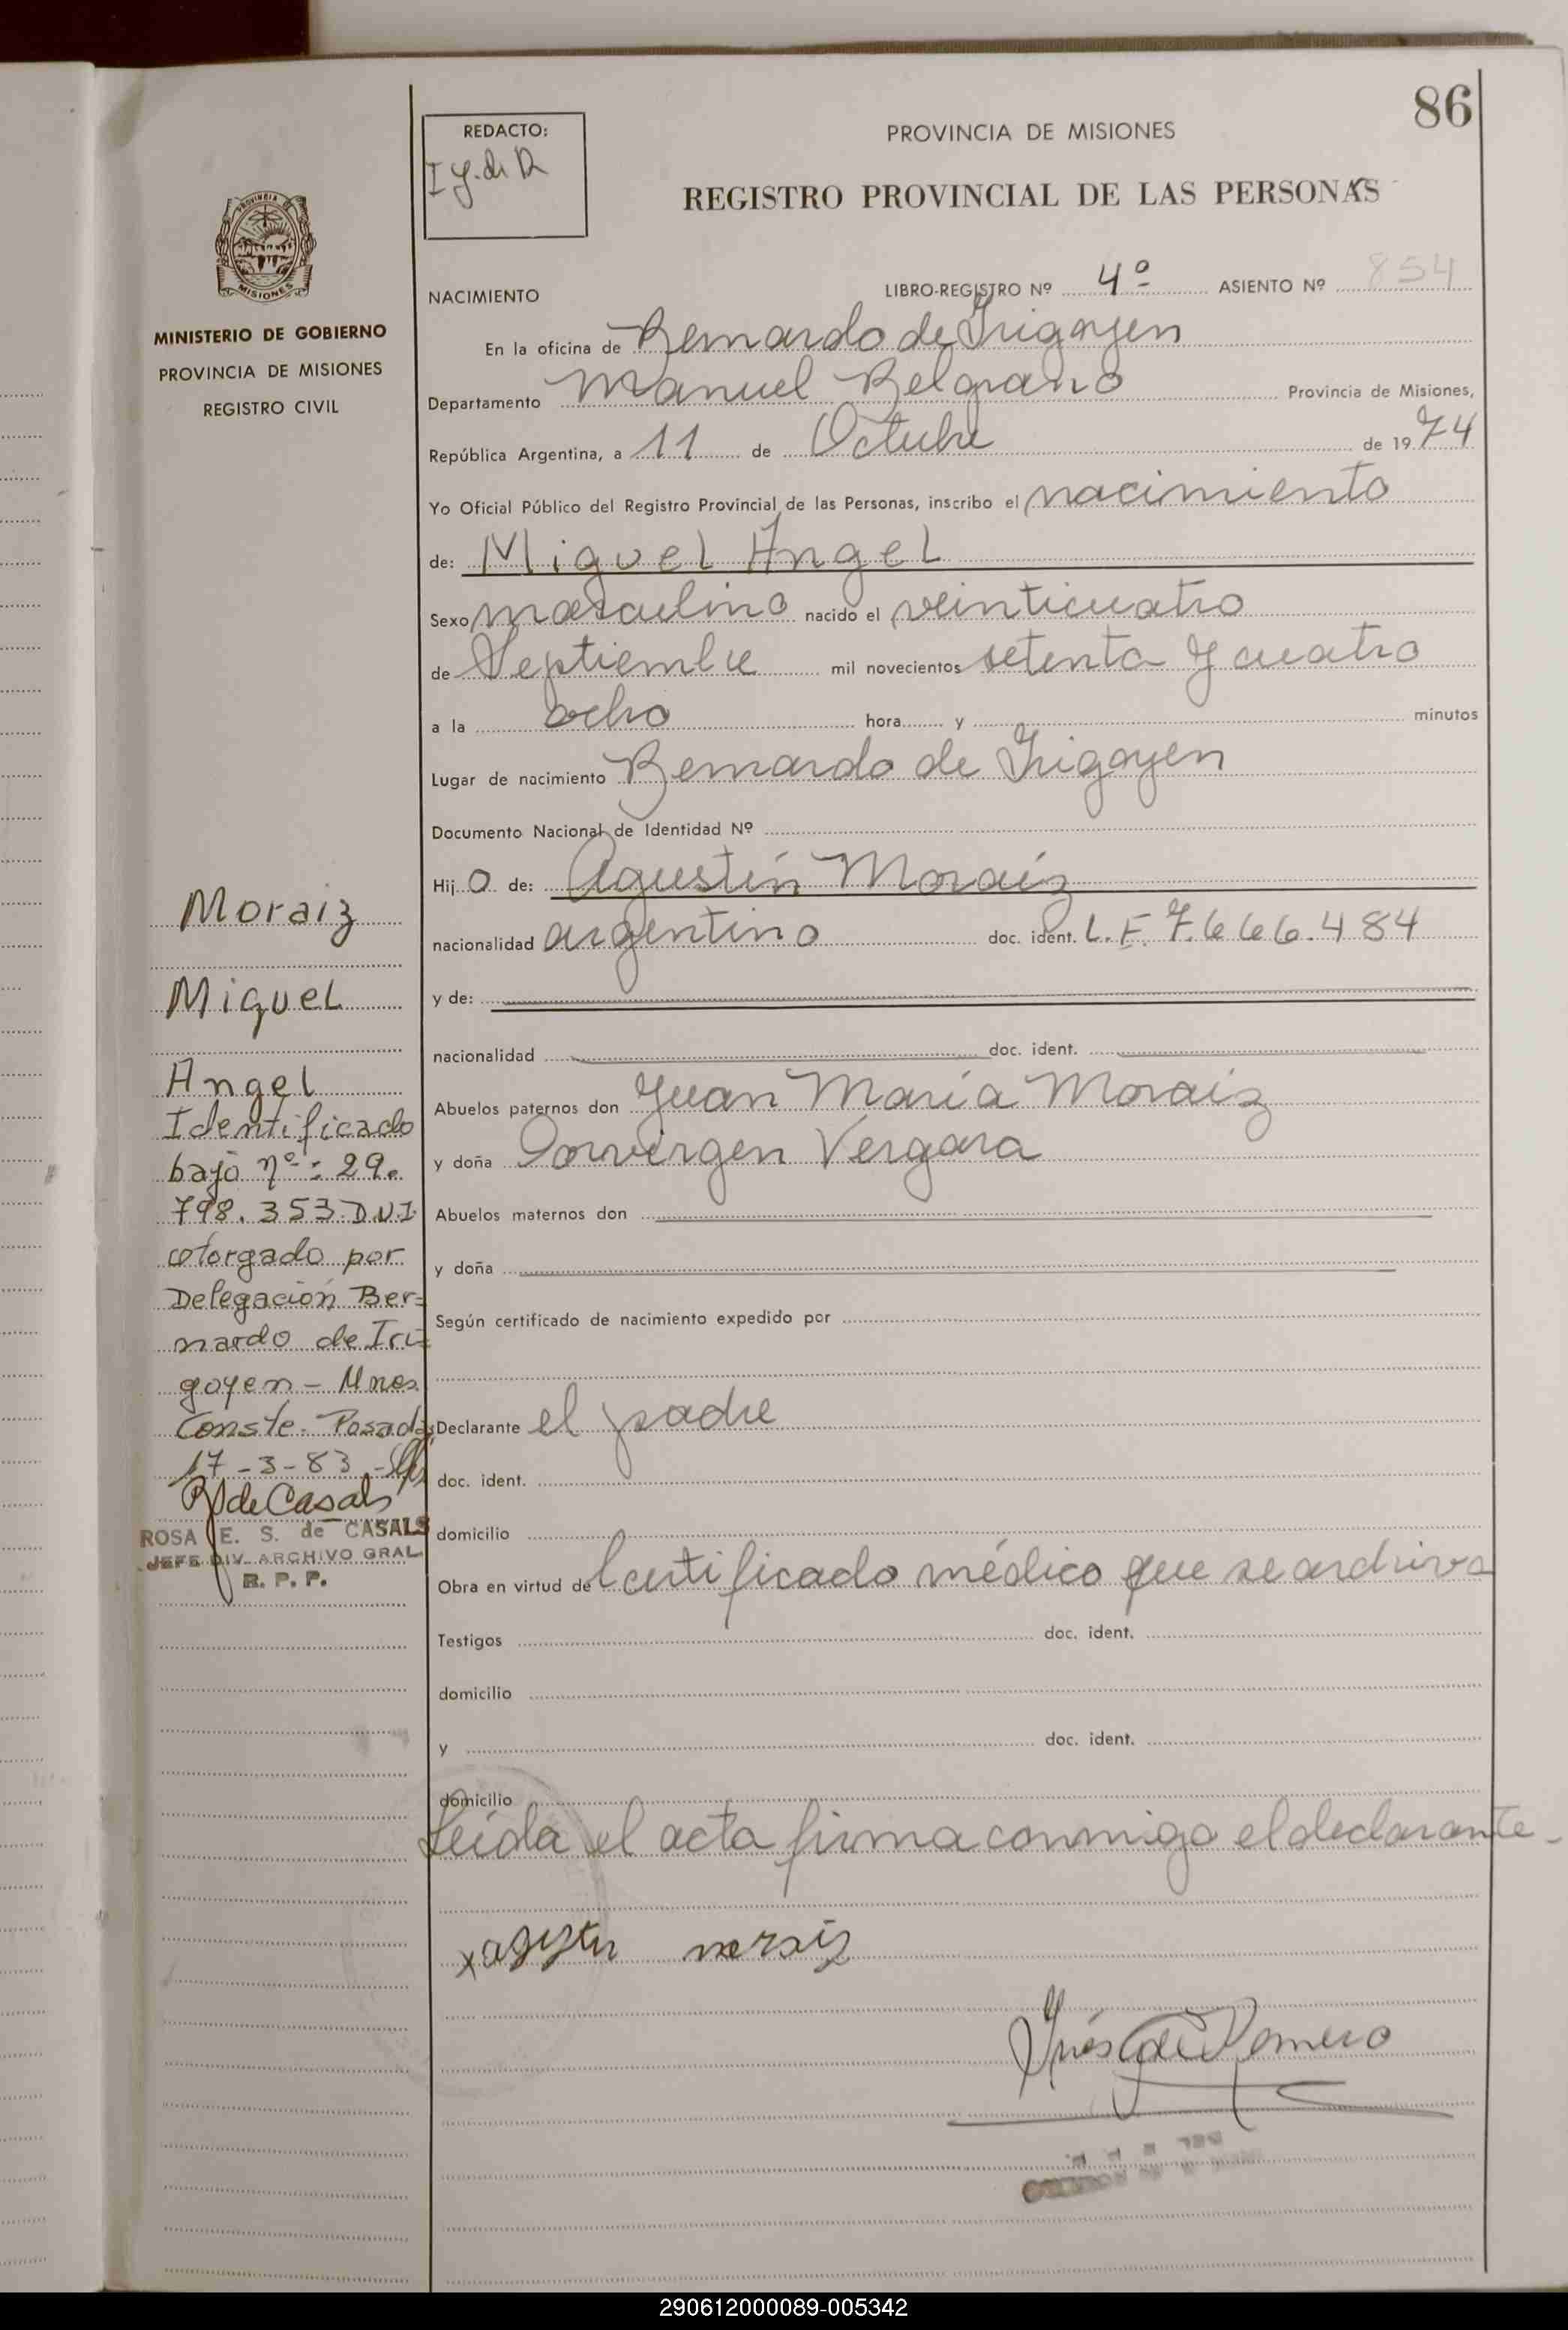 86
REDACTO:
I G. de R
PROVINCIA DE MISIONES
REGISTRO PROVINCIAL DE LAS PERSONAS
PROVINCIA DE
MISIONES
MINISTERIO DE GOBIERNO
PROVINCIA DE MISIONES
REGISTRO CIVIL
NACIMIENTO
LIBRO-REGISTRO Nº 4º ASIENTO Nº 854
En la oficina de Bernardo de Irigoyen
Departamento Manuel Belgrano Provincia de Misiones,
República Argentina, a 11 de Octubre de 1974
Yo Oficial Público del Registro Provincial de las Personas, inscribo el nacimiento
de: Miguel Angel
Sexo masculino nacido el veinticuatro
de Septiembre mil novecientos setenta y cuatro
a la ocho hora y minutos
Lugar de nacimiento Bernardo de Irigoyen
Documento Nacional de Identidad Nº
Hijo de: Agustín Moraiz
nacionalidad argentino doc. ident. L.E. 7.666.484
y de:
nacionalidad doc. ident.
Abuelos paternos don Juan María Moraiz
y doña Vergara
Abuelos maternos don
y doña
Según certificado de nacimiento expedido por
Declarante el padre
doc. ident.
domicilio
Obra en virtud de Certificado médico que se archiva
Testigos doc. ident.
domicilio
y doc. ident.
domicilio
Leida el acta firma conmigo el declarante-
x agustin moraiz
Inés G de Romero
Moraiz
Miguel
Angel
Identificado
bajo nº: 29.
798.353 D.N.I
otorgado por
Delegación Ber=
nardo de Iri=
goyen - Mnes.
Conste. Posadas,
17-3-83-
R S de Casals
ROSA E. S. de CASALS
JEFE DIV. ARCHIVO GRAL
R. P. P.
290612000089-005342